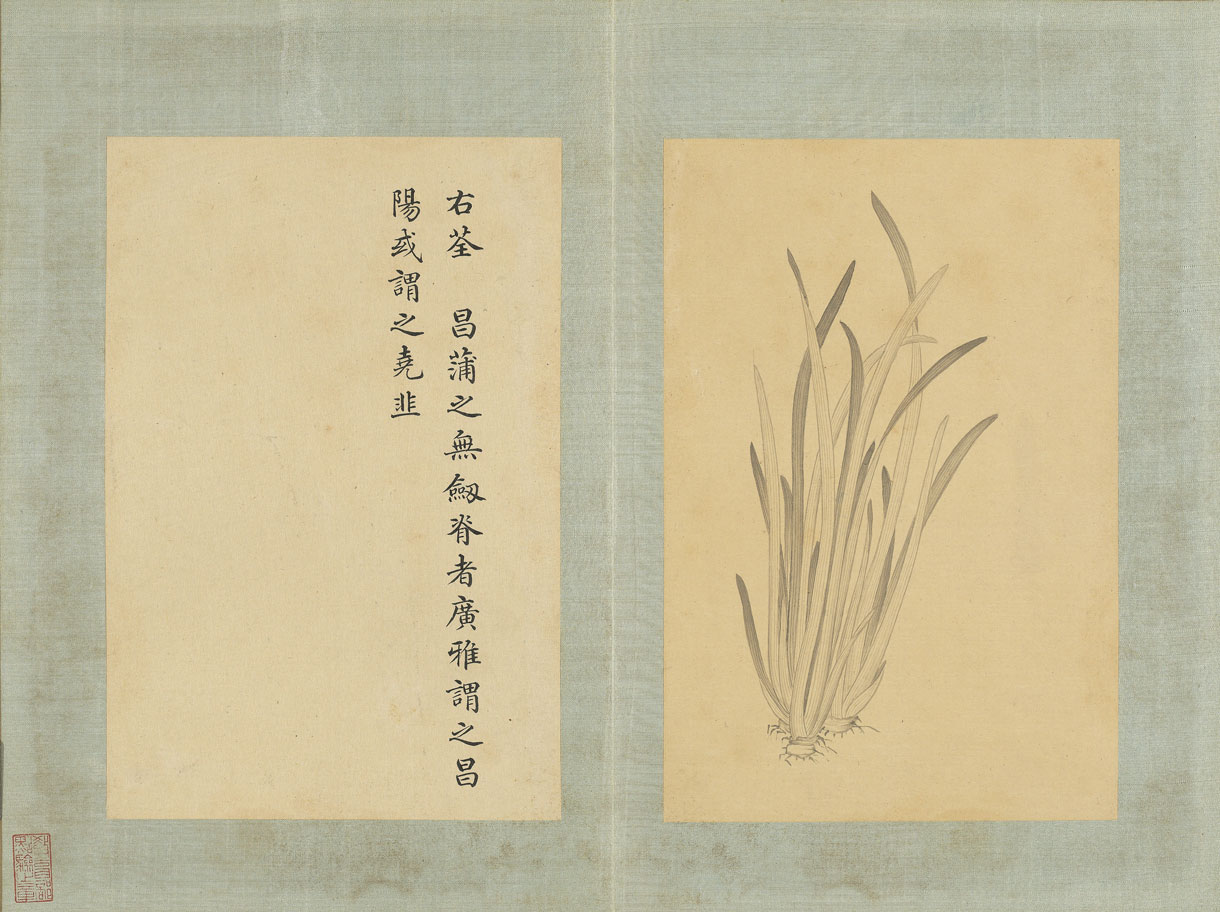 右荃　昌蒲之無劔脊者廣雅謂之昌
陽或謂之堯韭